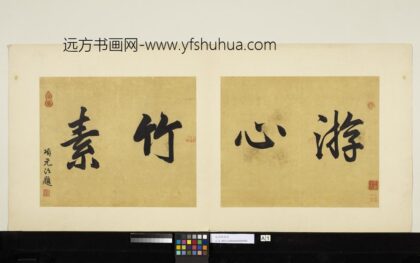 远方书画网-www.yfshuhua.com
游心
竹素
项元汴题